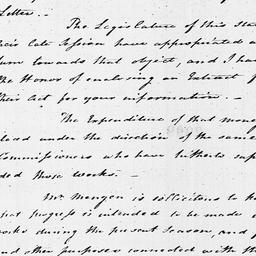 Letter. —
The Legislature of this Stat
their late Session have appropriated a
sum towards that object, and I hav
the Honor of enclosing an Extract f
their Act for your information. —
The Expenditure of that mone
placed under the direction of the same
Commissioners who have hitherto sup
ded those works. —
Mr. Mangen is solicitous to k
hat progress is intended to be made
works during the present Season, and f
and other purposes connected with th